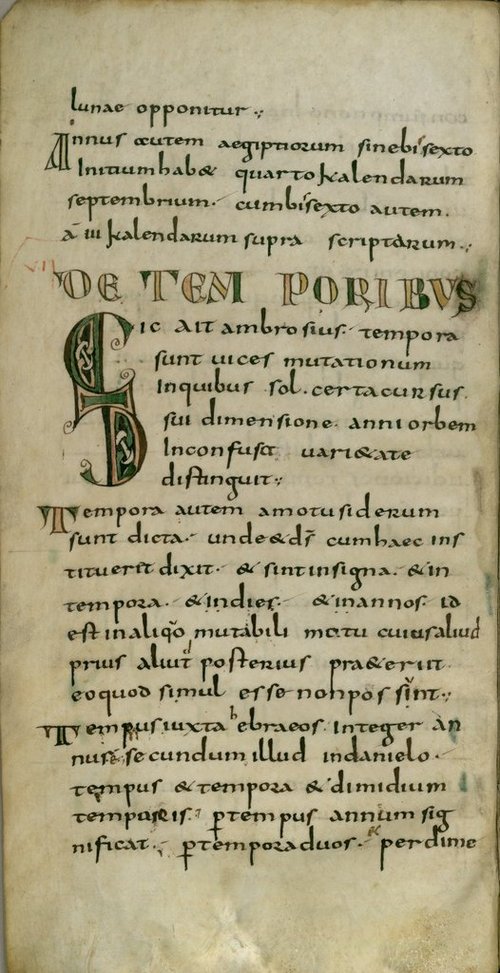 lunae opponitur·,
Annus autem aegiptiorum sinebisexto
Initium hab& quarto kalendarum
septembrium· cumbisexto autem·
a iii kalendarum supra scriptarum·,
DE TEM PORIBUS
SIC Ait ambrosius· tempora
sunt uices mutationum
Inquibus sol· certacursus
sui dimensione· anniorbem
Inconfusa uari&ate
distinguit·,
Tempora autem amotusiderum
sunt dicta· unde&ds̄ cumhaec ins
tituerit dixit· & sintinsigna· &in
tempora· &indies· &inannos· id
est inaliq̊o mutabili motu cuiusaliud
prius aliud posterius pra&erit
eoquod simul esse nonpossint·,
Tempusiuxta hebraeos· Integer An
nus· secundum illud indanielo·
tempus &tempora &dimidium
temporis· ꝑtempus annum sig
nificat· ꝑtemporaduos· perdime